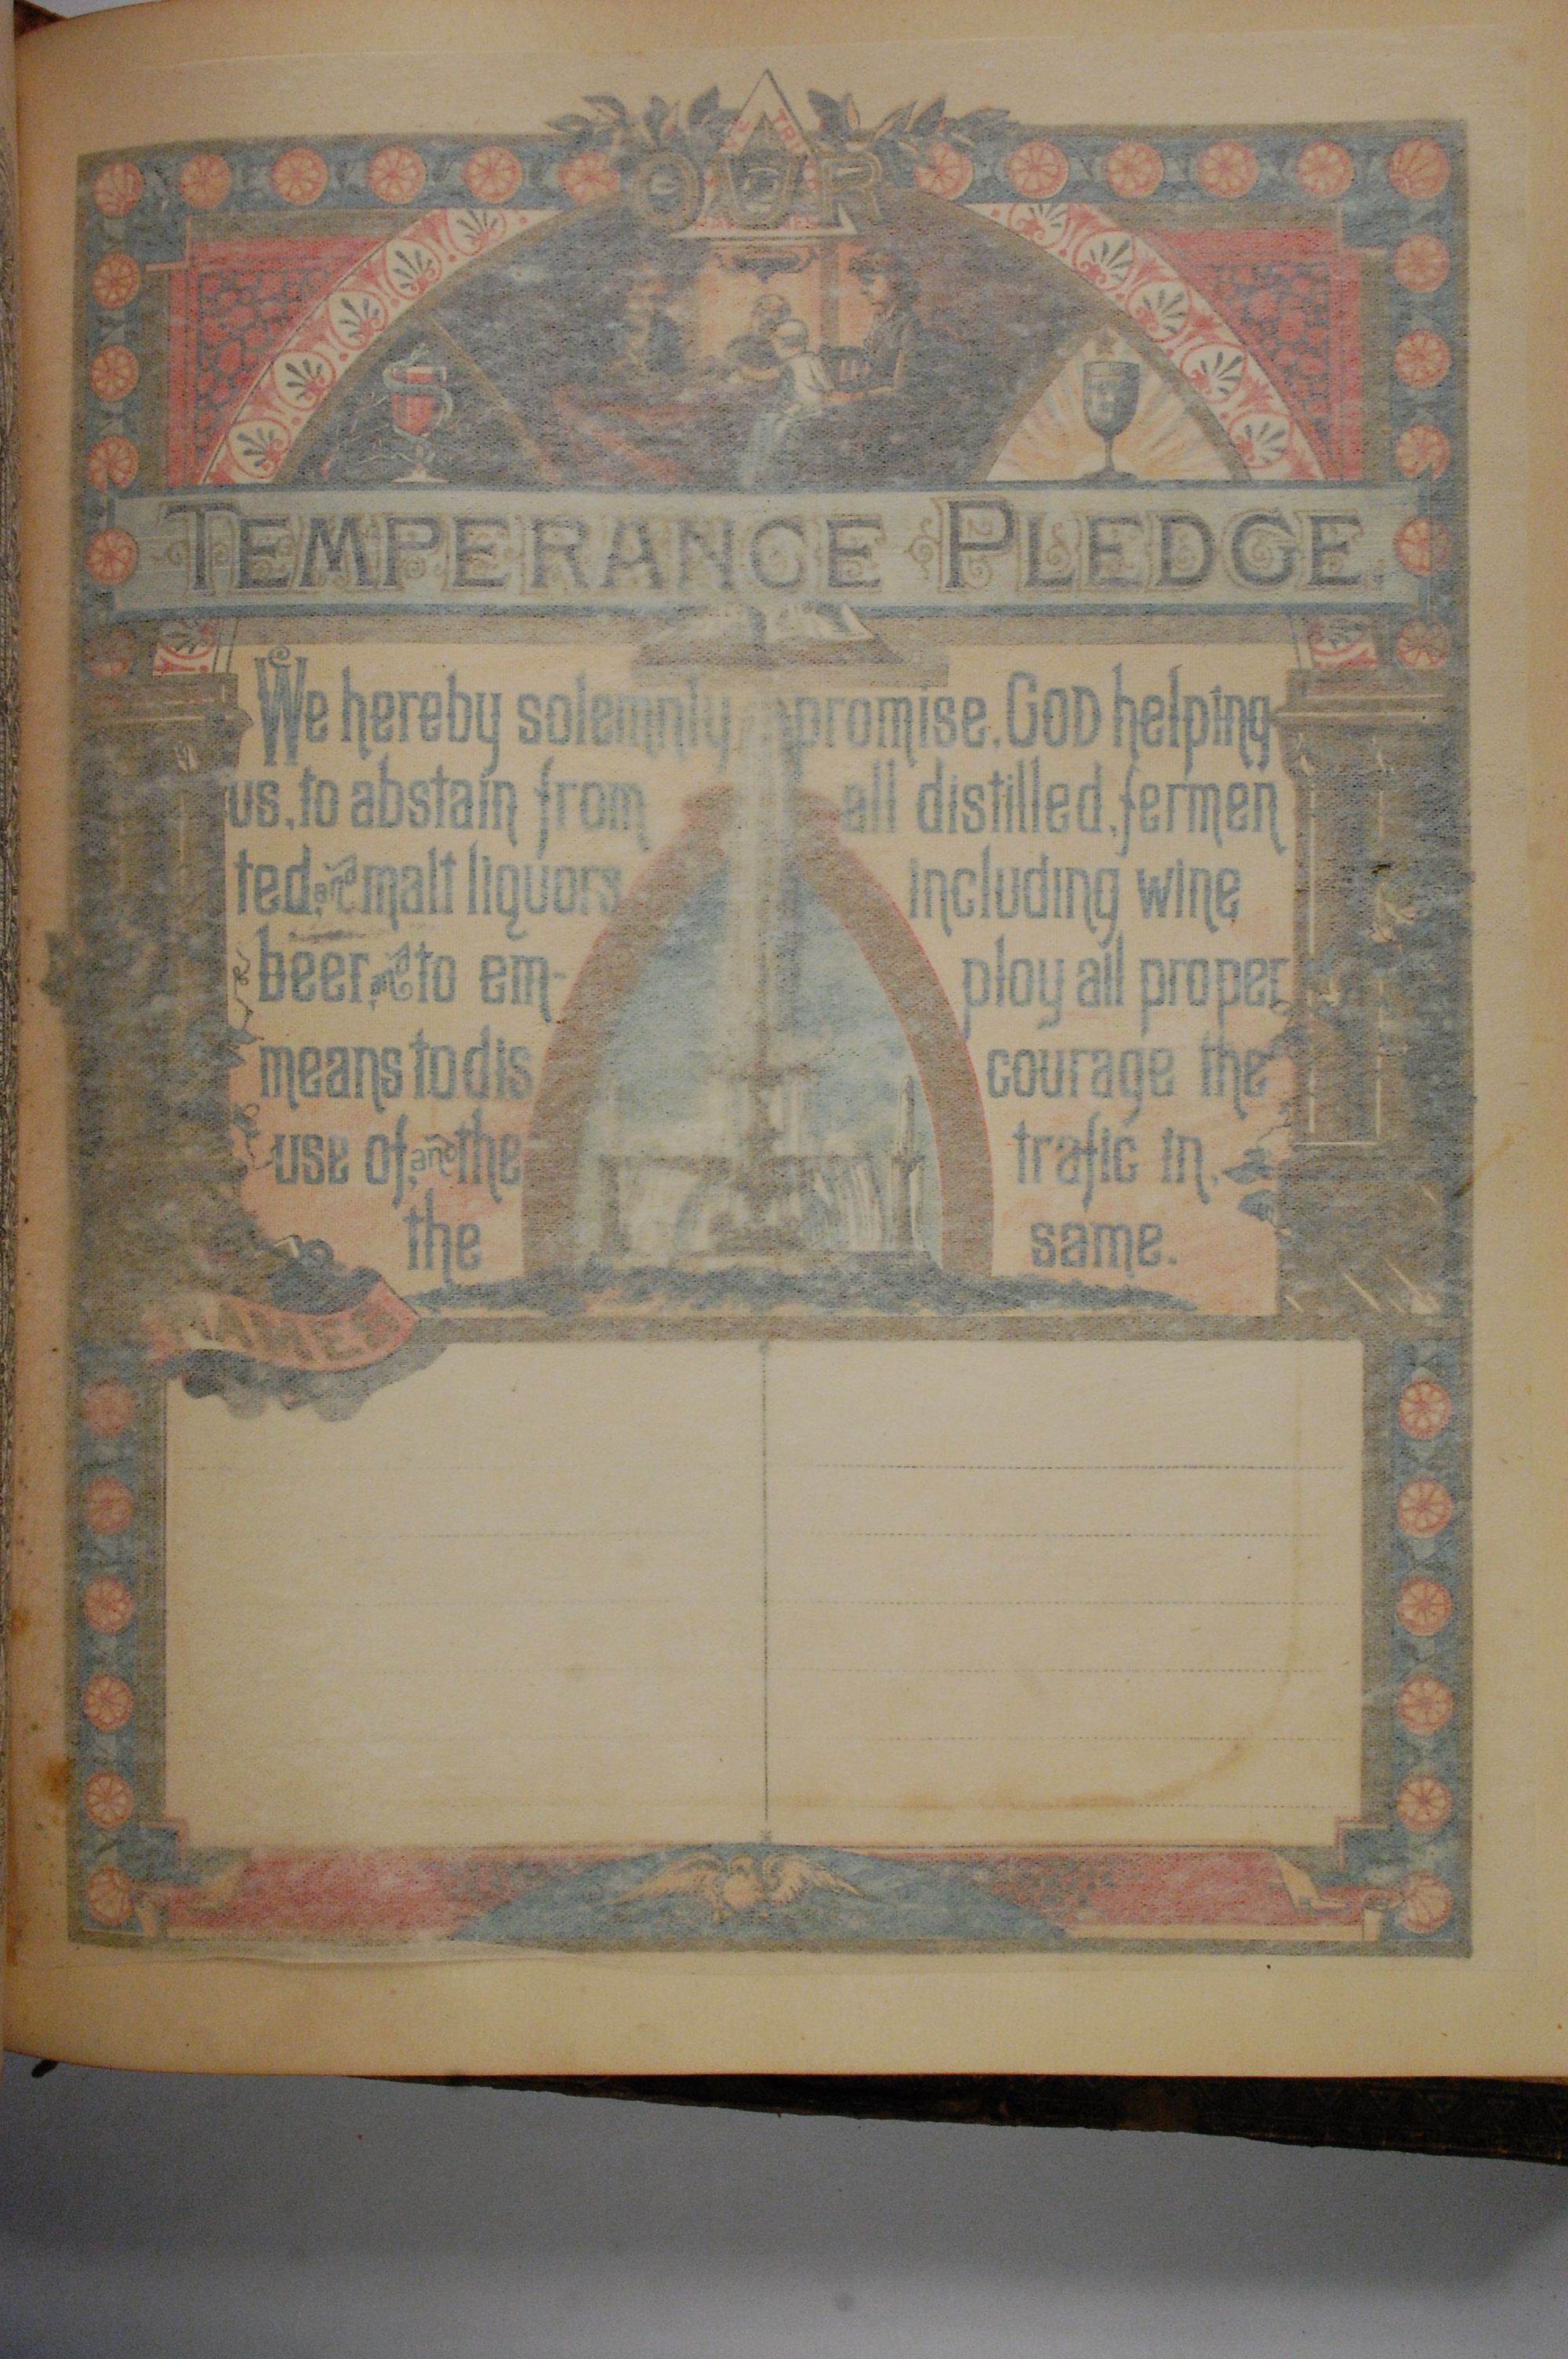 OUR
TEMPERANCE PLEDGE.
We hereby solemnly promise, GOD helping
us, to abstain from all distilled, fermen
ted, and malt liquors including wine
beer, and to em- ploy all proper
means to dis courage the
use of, and the trafic in,
the same.
NAMES